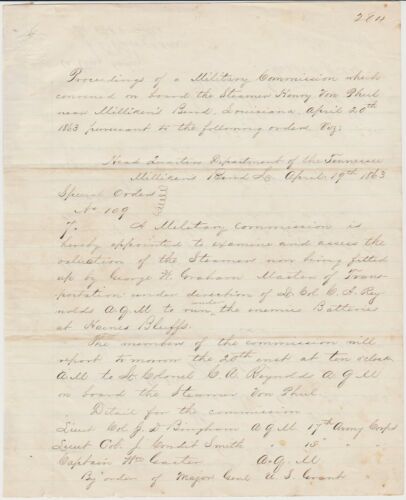 Proceedings of a Military Commission which
convened on board the Steamer Henry Von Phul
near Milliken's Bend, Louisiana, April 20th
1863 pursuant to the following orders Viz:
Head Quarters Department of the Tennessee
Millikens Bend La. April 19th 1863
Special Orders
No 109
A Military commission is
hereby appointed to examine and assess the
valuation of the Steamers now being fitted
up by George W. Graham Master of Trans-
portation under direction of Lt Col C. A. Rey
nolds A Q M to run the enemies Batteries
at Haines Bluffs.
The members of the commission will
report to morrow the 20th inst at ten oclock
A.M to Lt Colonel C. A. Reynolds A Q M
on board the Steamer Von Phul
Detail for the commission
Lieut Col J. D Bingham A Q M 17th Army Corps
Lieut Col J. Condit Smith " 13 "
Captain Wm Gaster A. Q. M
By order of Major Genl U. S. Grant